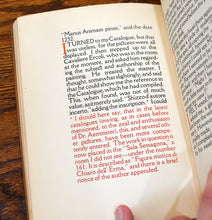 "Manus Animam pinxit," and the date
1239.
I TURNED to my Catalogue, but that
was useless, for the pictures were all
displaced. I then stepped up to the
Cavaliere Ercoli, who was in the room
at the moment, and asked him regard-
ing the subject and authorship of the
painting. He treated the matter,
somewhat, and said that he could show me
the reference in
the Catalogue, which he had compiled.
This, when found, was not of much
use, as it merely said, "Schizzo d'autore
incerto," adding the inscription. ¹ I could
¹ I should here say, that in the latest
catalogues (owing, as in cases before
mentioned, to the zeal and enthusiasm
of Dr. Aemmster), this, and several oth-
er pictures, have been more compe-
tently entered. The work in question is
now placed in the "Sala Sessagona," a
room I did not see—under the number
161. It is described as "Figura mistica di
Chiaro dell' Erma," and there is a brief
notice of the author appended.